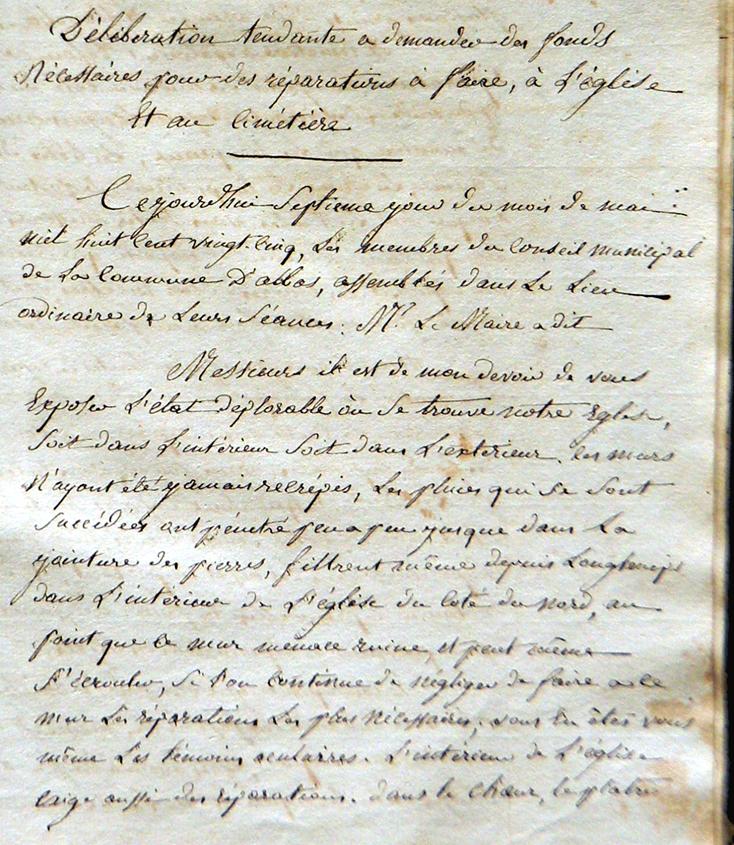 Délibération tendante a demander des fonds
Nécessaires pour des réparations à faire, à L'église
Et au Cimétière
Cejourdhui Septieme jour du mois de mai
mil huit cent vingt-cinq, Les membres du Conseil municipal
de La Commune D'abbas, assemblés dans Le Lieu
ordinaire de Leurs Séances. Mr. Le Maire a dit
Messieurs il est de mon devoir de vous
Exposer L'état déplorable òu Se trouve notre Eglise,
Soit dans L'intérieur Soit dans L'exterieur. les murs
N'ayant été jamais recrépis, Les pluies qui Se Sont
Succédées ont pénétré peu a peu jusque dans La
jointure des pierres, filtrent même depuis Longtemps
dans L'interieur de L'église du coté du Nord, au
point que ce mur menace ruine, et peut même
S'écrouler, Si l'on continue de négliger de faire a ce
mur Les réparations Les plus nécessaires, vous En êtes vous
même Les témoins oculaires. L'intérieur de L'église
Exige aussi des réparations. dans le Chœur, le platre